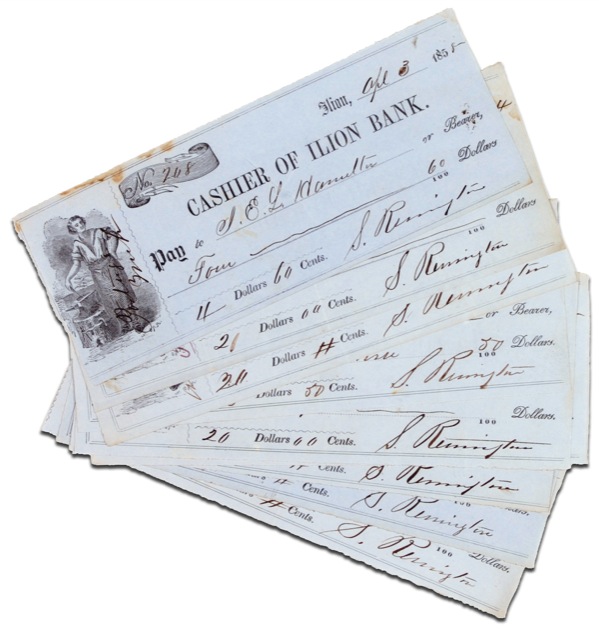 Ilion, Apl 3 1858
No. 208
CASHIER OF ILION BANK.
Pay to S. E. L. Hamilton or Bearer,
Four 60/100 Dollars
4 Dollars 60 Cents. S. Remington
100 Dollars
2 Dollars 00 Cents. S. Remington
Dollars # Cents. S. Remington
or Bearer,
50/100 Dollars.
Dollars 50 Cents. S. Remington
100 Dollars.
20 Dollars 00 Cents. S. Remington
# Cents. S. Remington
# Cents. S. Remington
# Cents. S. Remington
100 Dollars.